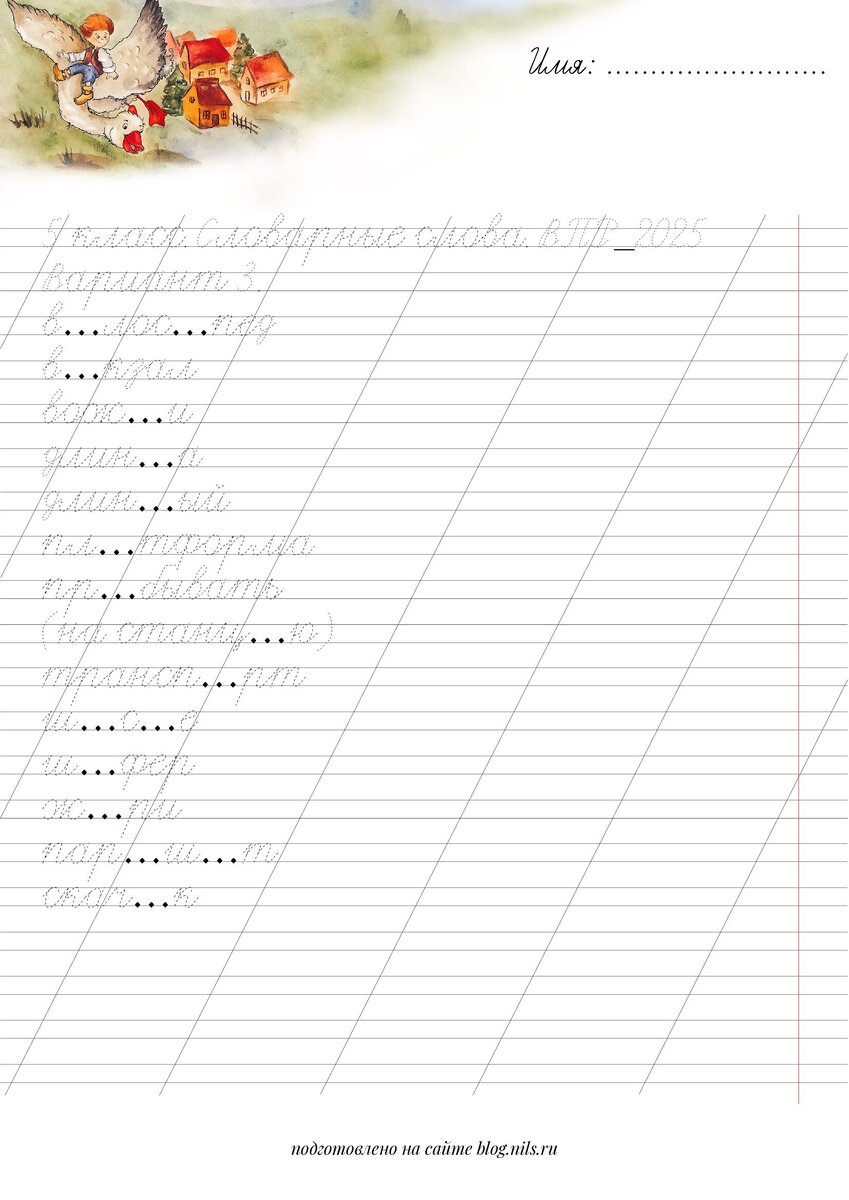 Имя: .........................
5 класс. Словарные слова. ВПР_2025
Вариант 3.
в...лос...пед
в...кзал
вожж...и
длин...а
длин...ый
пл...тформа
пр...бывать
(на станц...ю)
трансп...рт
ш...с...е
ш...фер
ж...ри
пар...ш...т
скач...к
подготовлено на сайте blog.nils.ru